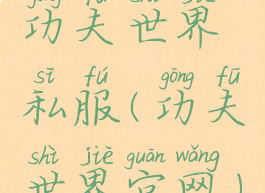 gōng fū shì jiè
功夫世界
sī fú gōng fū
私服(功夫
shì jiè guān wǎng
世界官网)